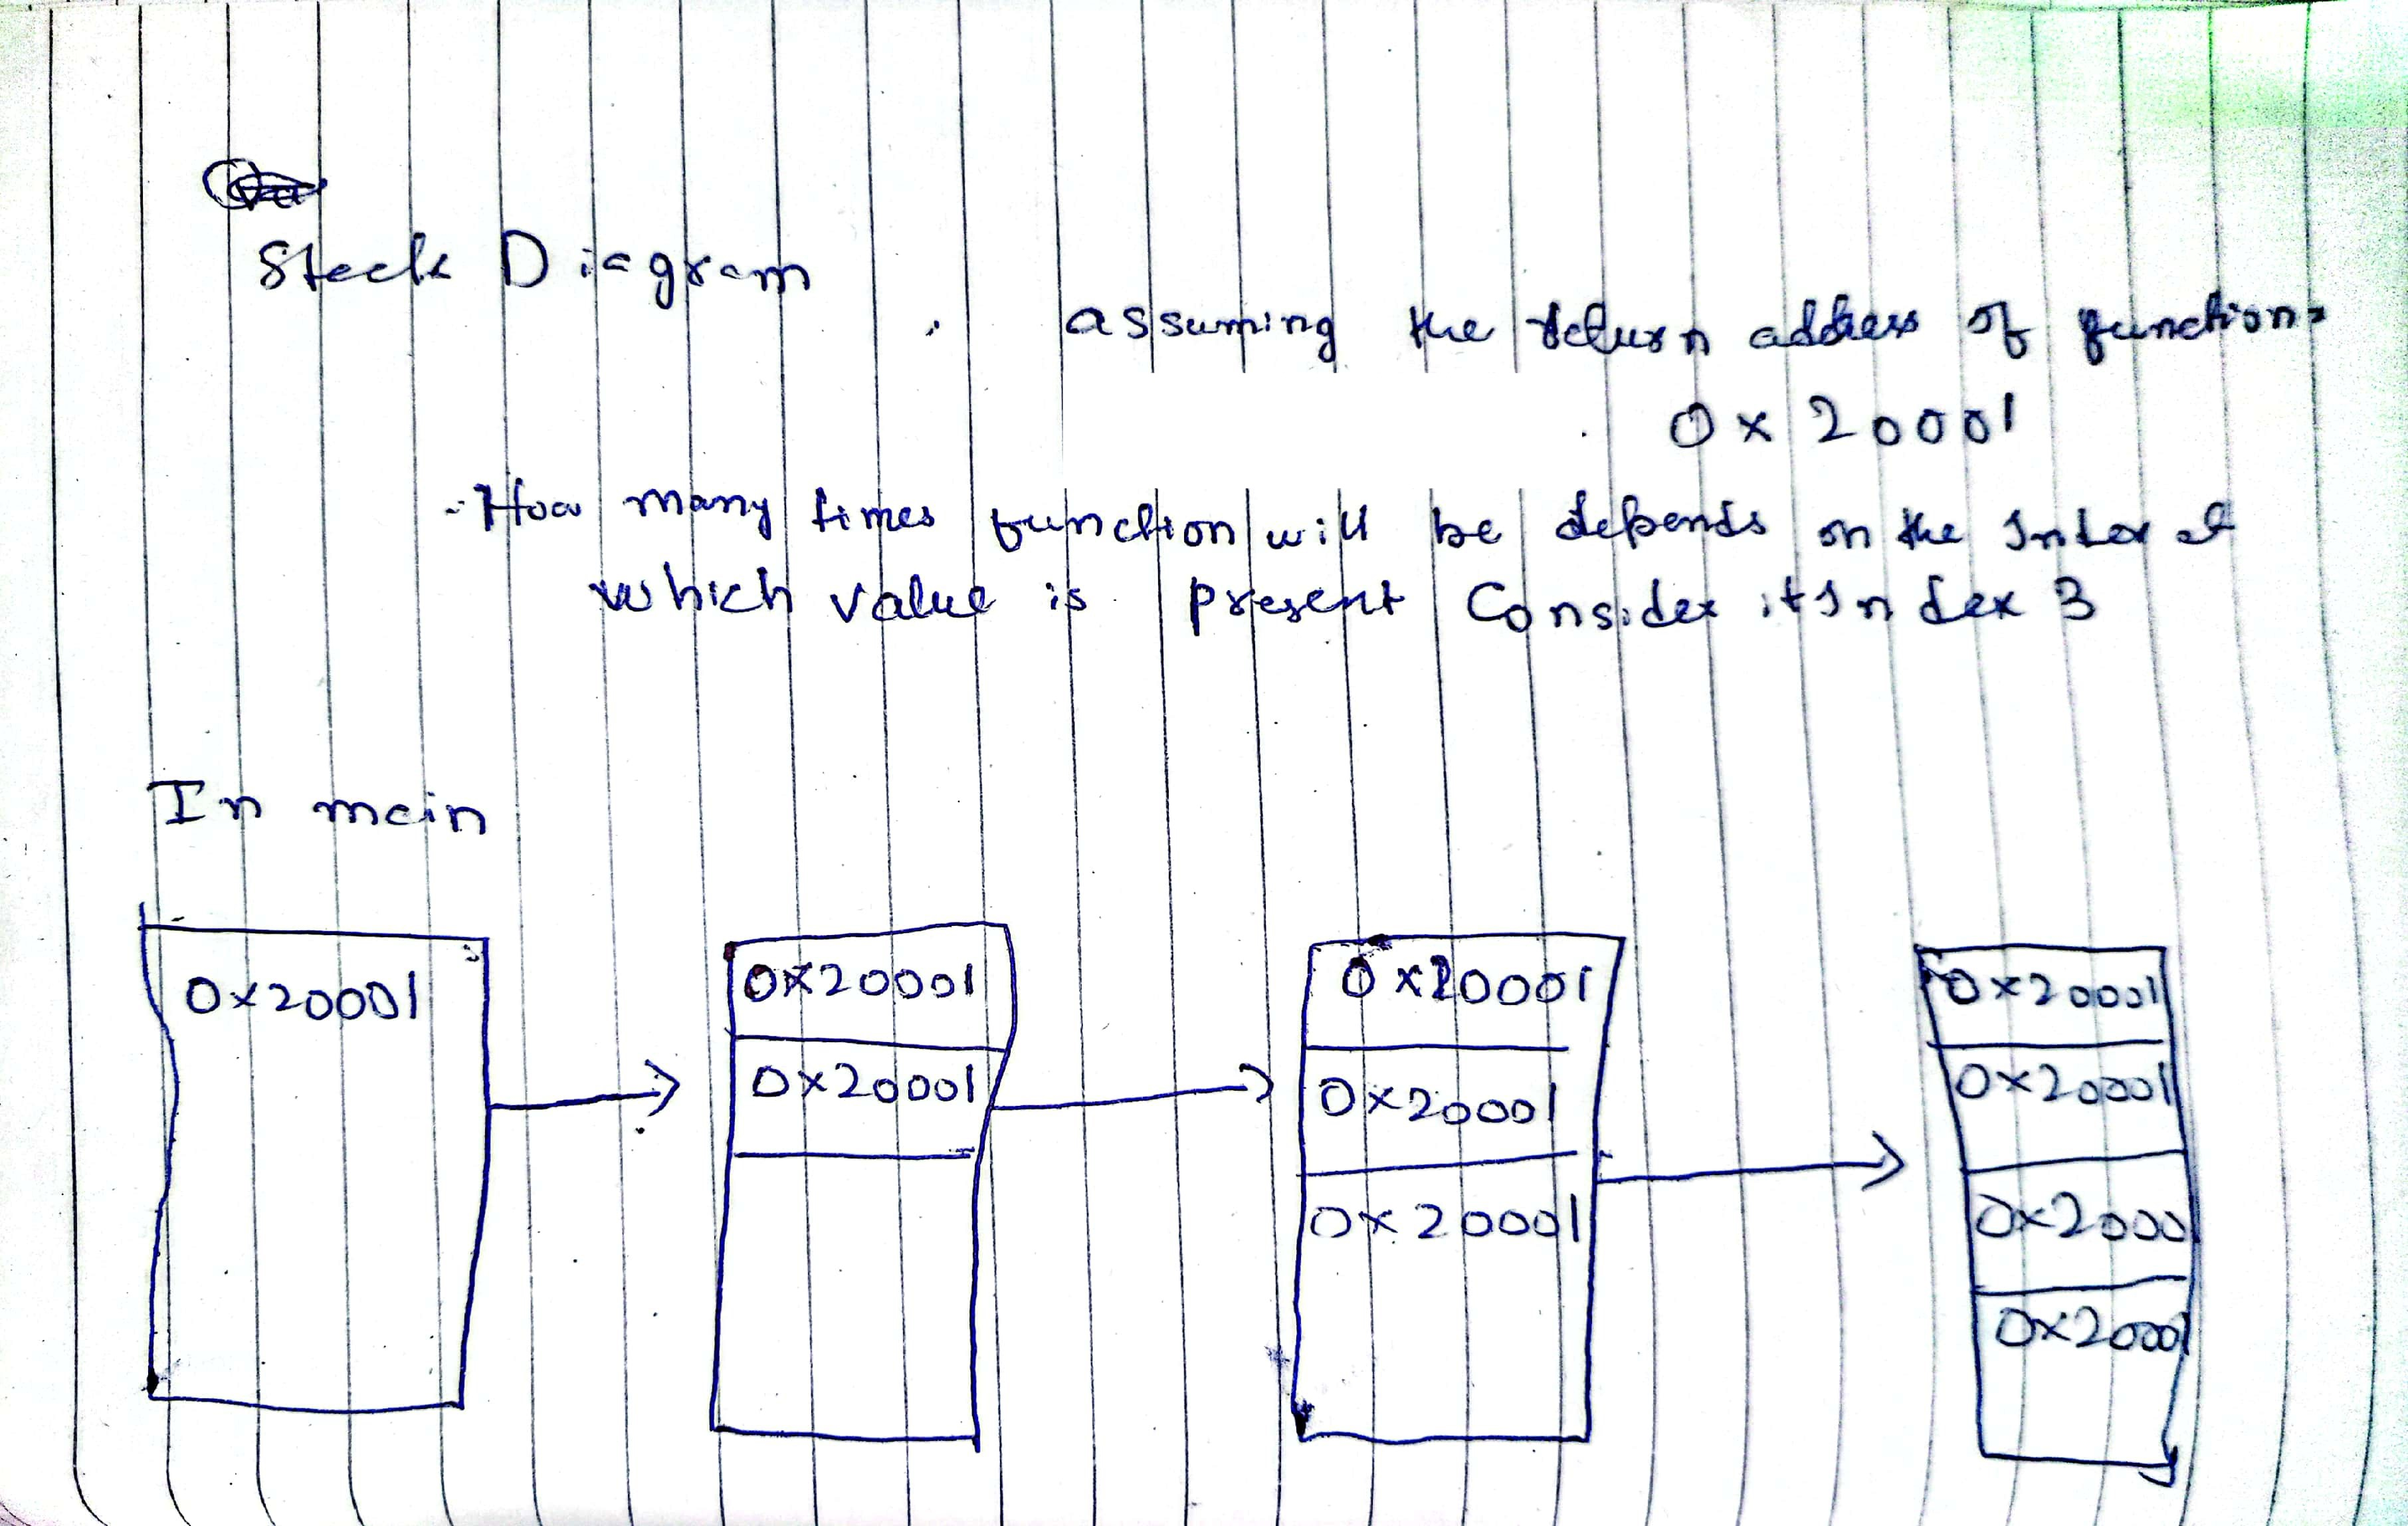 Stack Diagram
assuming the return address of function =
0x20001
- How many times function will be depends on the Index at
which value is present Consider it Index 3
In main
0x20001
0x20001
0x20001
0x20001
0x20001
0x20001
0x20001
0x20001
0x2000
0x2000